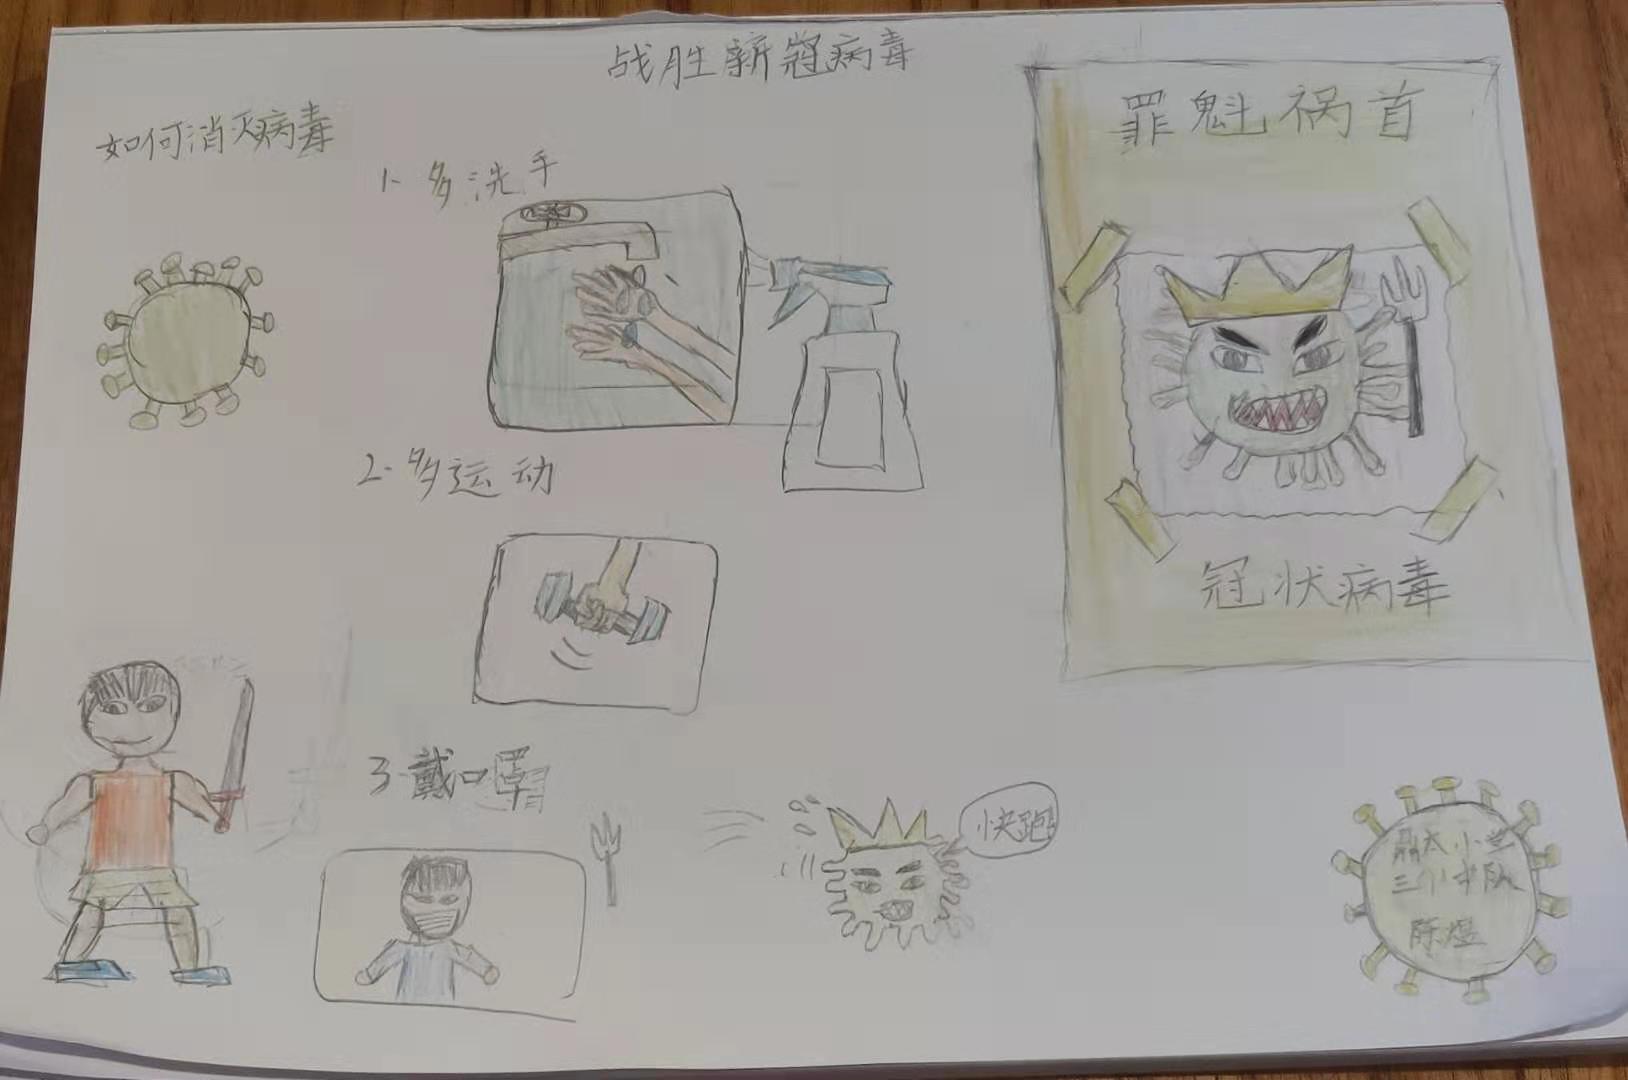 战胜新冠病毒
如何消灭病毒
1.多洗手
2.多运动
3.戴口罩
罪魁祸首
冠状病毒
快跑
晶太小学
三(1)中队
陈煜